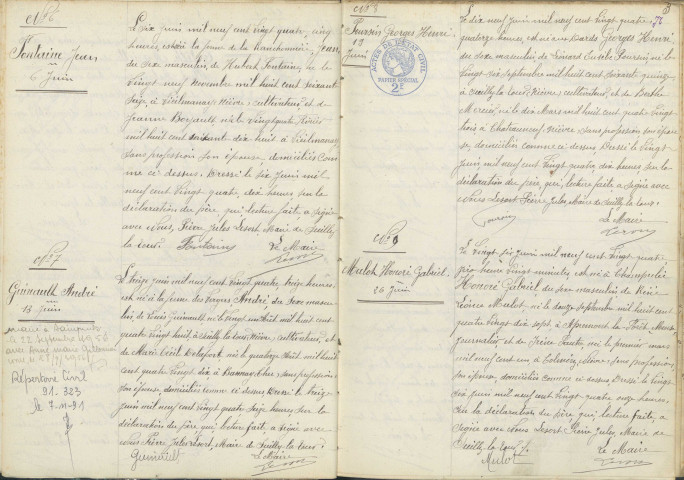 N° 6
Fontaine Jean
6 Juin
Le six juin mil neuf cent vingt quatre, cinq
heures, est né à la ferme de la Ranchonnière, Jean,
du sexe masculin, de Hubert Fontaine, né le
vingt neuf novembre mil huit cent soixante
seize, à Vielmanay Nièvre, cultivateur, et de
Jeanne
mil huit cent soixante dix huit à Vielmanay
sans profession son épouse, domiciliés com
me ci dessus. Dressé le six juin mil
neuf cent vingt quatre, dix heures, sur la
déclaration du père, qui, lecture faite, a signé
avec Nous, Pierre Jules Lesort, Maire de Suilly
la Tour.
Fontaine Le Maire
N° 7
Guinault André
13 Juin
Répertoire Civil
91. 323
le 7-11-91
Le treize juin mil neuf cent vingt quatre, treize heures,
est né à la ferme des Forges André, du sexe mascu
lin, de Louis Guinault, né le vingt mil huit cent
quatre vingt dix à Suilly la Tour, Nièvre, cultivateur, et
de Marie né le quatorze Août mil huit
cent quatre vingt dix à Bannay, Cher, sans profession
son épouse, domiciliés comme ci dessus. Dressé le treize
juin mil neuf cent vingt quatre, seize heures, sur la
déclaration du père, qui, lecture faite, a signé avec
nous Pierre Jules Lesort, Maire de Suilly la Tour.
Guinault Le Maire
76
N° 8
Poursin Georges Henri
19
Juin
ACTES DE L'ETAT CIVIL
PAPIER SPECIAL
2F
Le dix neuf juin mil neuf cent vingt quatre,
quatorze heures, est né aux Bards, Georges Henri,
du sexe masculin, de Léonard Eusèbe Poursin, né le
vingt six septembre mil huit cent soixante quinze
à Suilly la Tour, Nièvre, cultivateur, et de Berthe
Mercier, née le dix Mars mil huit cent quatre vingt
trois à Châteauneuf Nièvre, sans profession, son épou
se, domiciliés comme ci dessus. Dressé le vingt
juin, mil neuf cent vingt quatre, dix heures, sur la
déclaration du père, qui, lecture faite, a signé avec
Nous Lesort Pierre Jules, Maire de Suilly la Tour.
Poursin Le Maire
N° 9
Mulot Honoré Gabriel
26 Juin
Le vingt six juin mil neuf cent vingt quatre
heure vingt minutes, est né à Champcelée
Honoré Gabriel, du sexe masculin, de René
Mulot, né le douze septembre mil huit cent
quatre vingt dix sept à Apremont la Forêt, Meuse
journalier et de né le premier mars
mil neuf cent un à Colméry, Nièvre, sans profession,
son épouse, domiciliés comme ci dessus. Dressé le vingt
six juin mil neuf cent vingt quatre onze heures,
sur la déclaration du père, qui, lecture faite, a
signé avec Nous Lesort Pierre Jules, Maire de
Suilly-la-Tour.
Mulot Le Maire